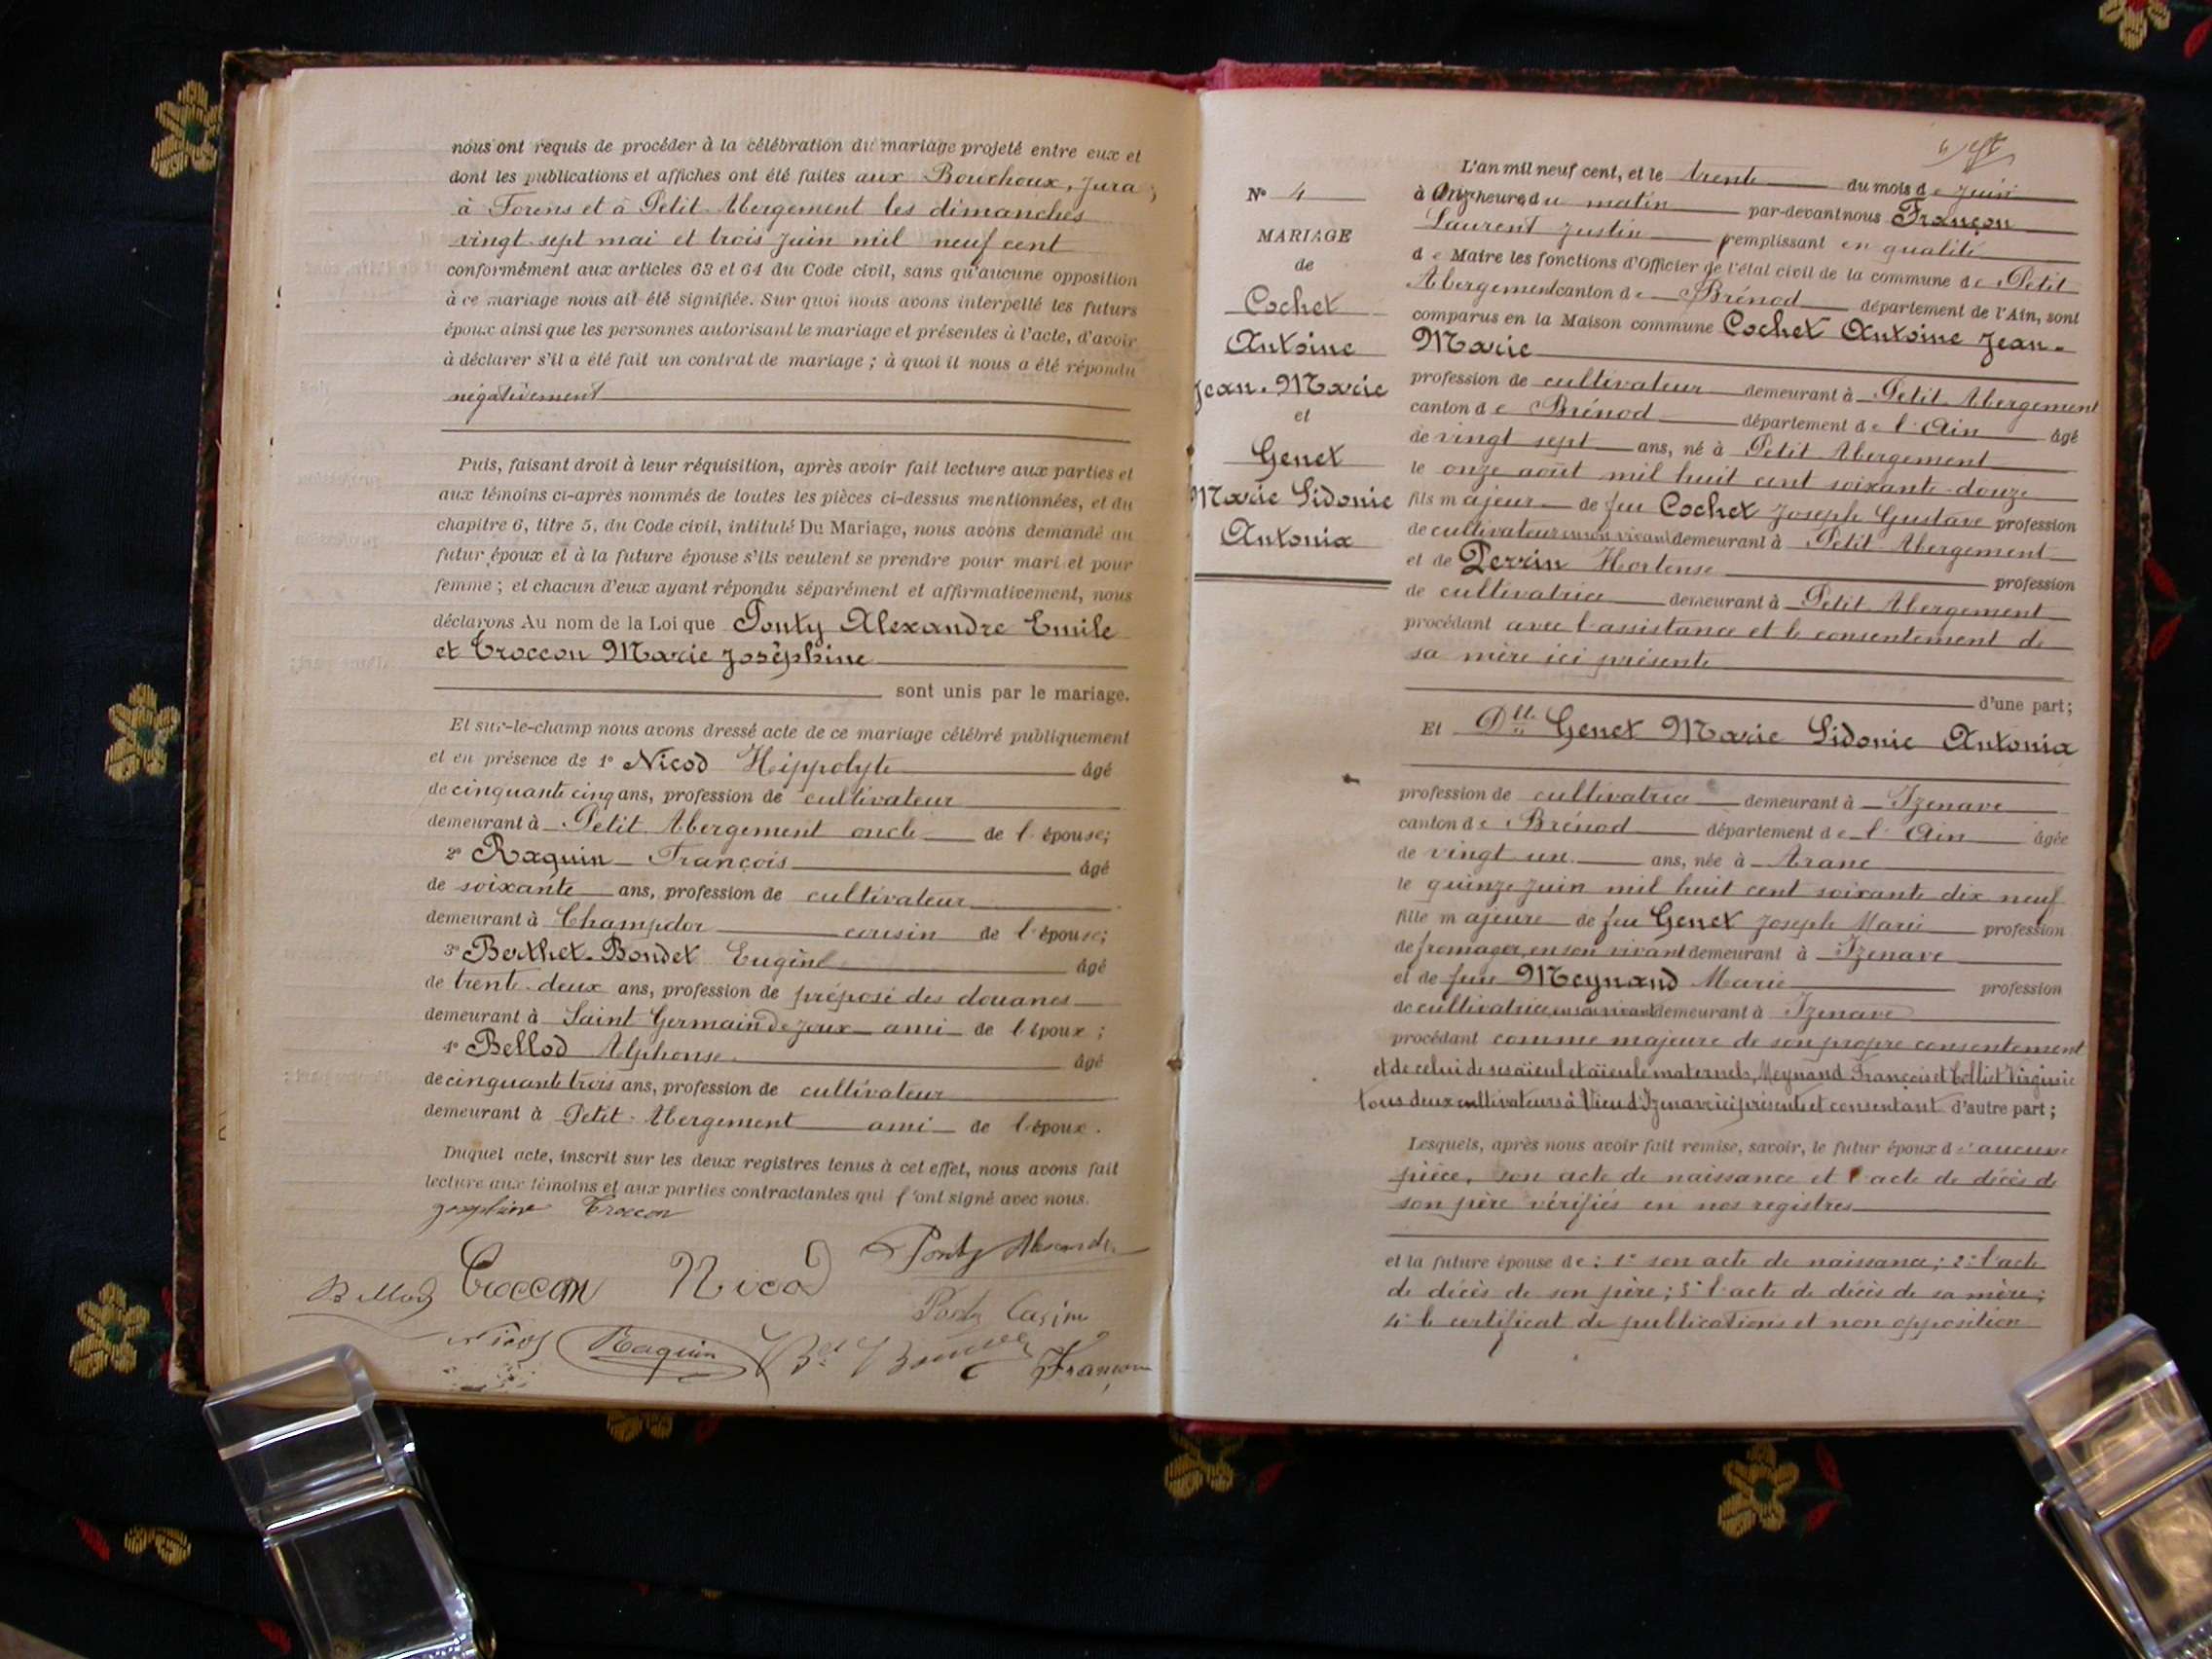 nous ont requis de procéder à la célébration du mariage projeté entre eux et
dont les publications et affiches ont été faites aux Bouchoux, Jura;
à Forens et à Petit-Abergement les dimanches
vingt-sept mai et trois juin mil neuf cent
conformément aux articles 63 et 64 du Code civil, sans qu'aucune opposition
à ce mariage nous ait été signifiée. Sur quoi nous avons interpellé les futurs
époux ainsi que les personnes autorisant le mariage et présentes à l'acte, d'avoir
à déclarer s'il a été fait un contrat de mariage ; à quoi il nous a été répondu
négativement
Puis, faisant droit à leur réquisition, après avoir fait lecture aux parties et
aux témoins ci-après nommés de toutes les pièces ci-dessus mentionnées, et du
chapitre 6, titre 5, du Code civil, intitulé Du Mariage, nous avons demandé au
futur époux et à la future épouse s'ils veulent se prendre pour mari et pour
femme ; et chacun d'eux ayant répondu séparément et affirmativement, nous
déclarons Au nom de la Loi que Ponty Alexandre Emile
et Troccon Marie Joséphine
sont unis par le mariage.
Et sur-le-champ nous avons dressé acte de ce mariage célébré publiquement
et en présence de 1° Nicod Hippolyte âgé
de cinquante cinq ans, profession de cultivateur
demeurant à Petit Abergement oncle de l'épouse;
2° Raquin François âgé
de soixante ans, profession de cultivateur
demeurant à Champdor cousin de l'épouse;
3° Berthet-Bondet Eugène âgé
de trente-deux ans, profession de préposé des douanes
demeurant à Saint Germain de Joux ami de l'époux ;
4° Bellod Alphonse âgé
de cinquante trois ans, profession de cultivateur
demeurant à Petit-Abergement ami de l'époux.
Duquel acte, inscrit sur les deux registres tenus à cet effet, nous avons fait
lecture aux témoins et aux parties contractantes qui l'ont signé avec nous.
Joséphine Troccon
Ponty Alexandre
Bellod Troccon Nicod
Ponty Casimir
Nicod Raquin Françon
N° 4
MARIAGE
de
Cochet
Antoine
Jean-Marie
et
Genet
Marie Sidonie
Antonia
L'an mil neuf cent, et le trente du mois de Juin
à Onze heures du matin par-devant nous Françon
Laurent Justin remplissant en qualité
de Maire les fonctions d'Officier de l'état civil de la commune de Petit
Abergement canton de Brénod département de l'Ain, sont
comparus en la Maison commune Cochet Antoine Jean-
Marie
profession de cultivateur demeurant à Petit-Abergement
canton de Brénod département de l'Ain âgé
de vingt sept ans, né à Petit Abergement
le onze août mil huit cent soixante-douze
fils majeur de feu Cochet Joseph Gustave profession
de cultivateur en son vivant demeurant à Petit-Abergement
et de Perrin Hortense profession
de cultivatrice demeurant à Petit Abergement
procédant avec l'assistance et le consentement de
sa mère ici présente
d'une part;
Et Dlle Genet Marie Sidonie Antonia
profession de cultivatrice demeurant à Izenave
canton de Brénod département de l'Ain âgée
de vingt un ans, née à Aranc
le quinze juin mil huit cent soixante dix neuf
fille majeure de feu Genet Joseph Marie profession
de fromager, en son vivant demeurant à Izenave
et de feue Meynand Marie profession
de cultivatrice en son vivant demeurant à Izenave
procédant comme majeure de son propre consentement
et de celui de ses aïeul et aïeule maternels, Meynand François et Colliet Virginie
tous deux cultivateurs à Vieu d'Izenave ici présents et consentant d'autre part ;
Lesquels, après nous avoir fait remise, savoir, le futur époux d'aucune
pièce, son acte de naissance et l'acte de décès de
son père vérifiés en nos registres
et la future épouse de : 1° son acte de naissance; 2° l'acte
de décès de son père; 3° l'acte de décès de sa mère;
4° le certificat de publications et non opposition